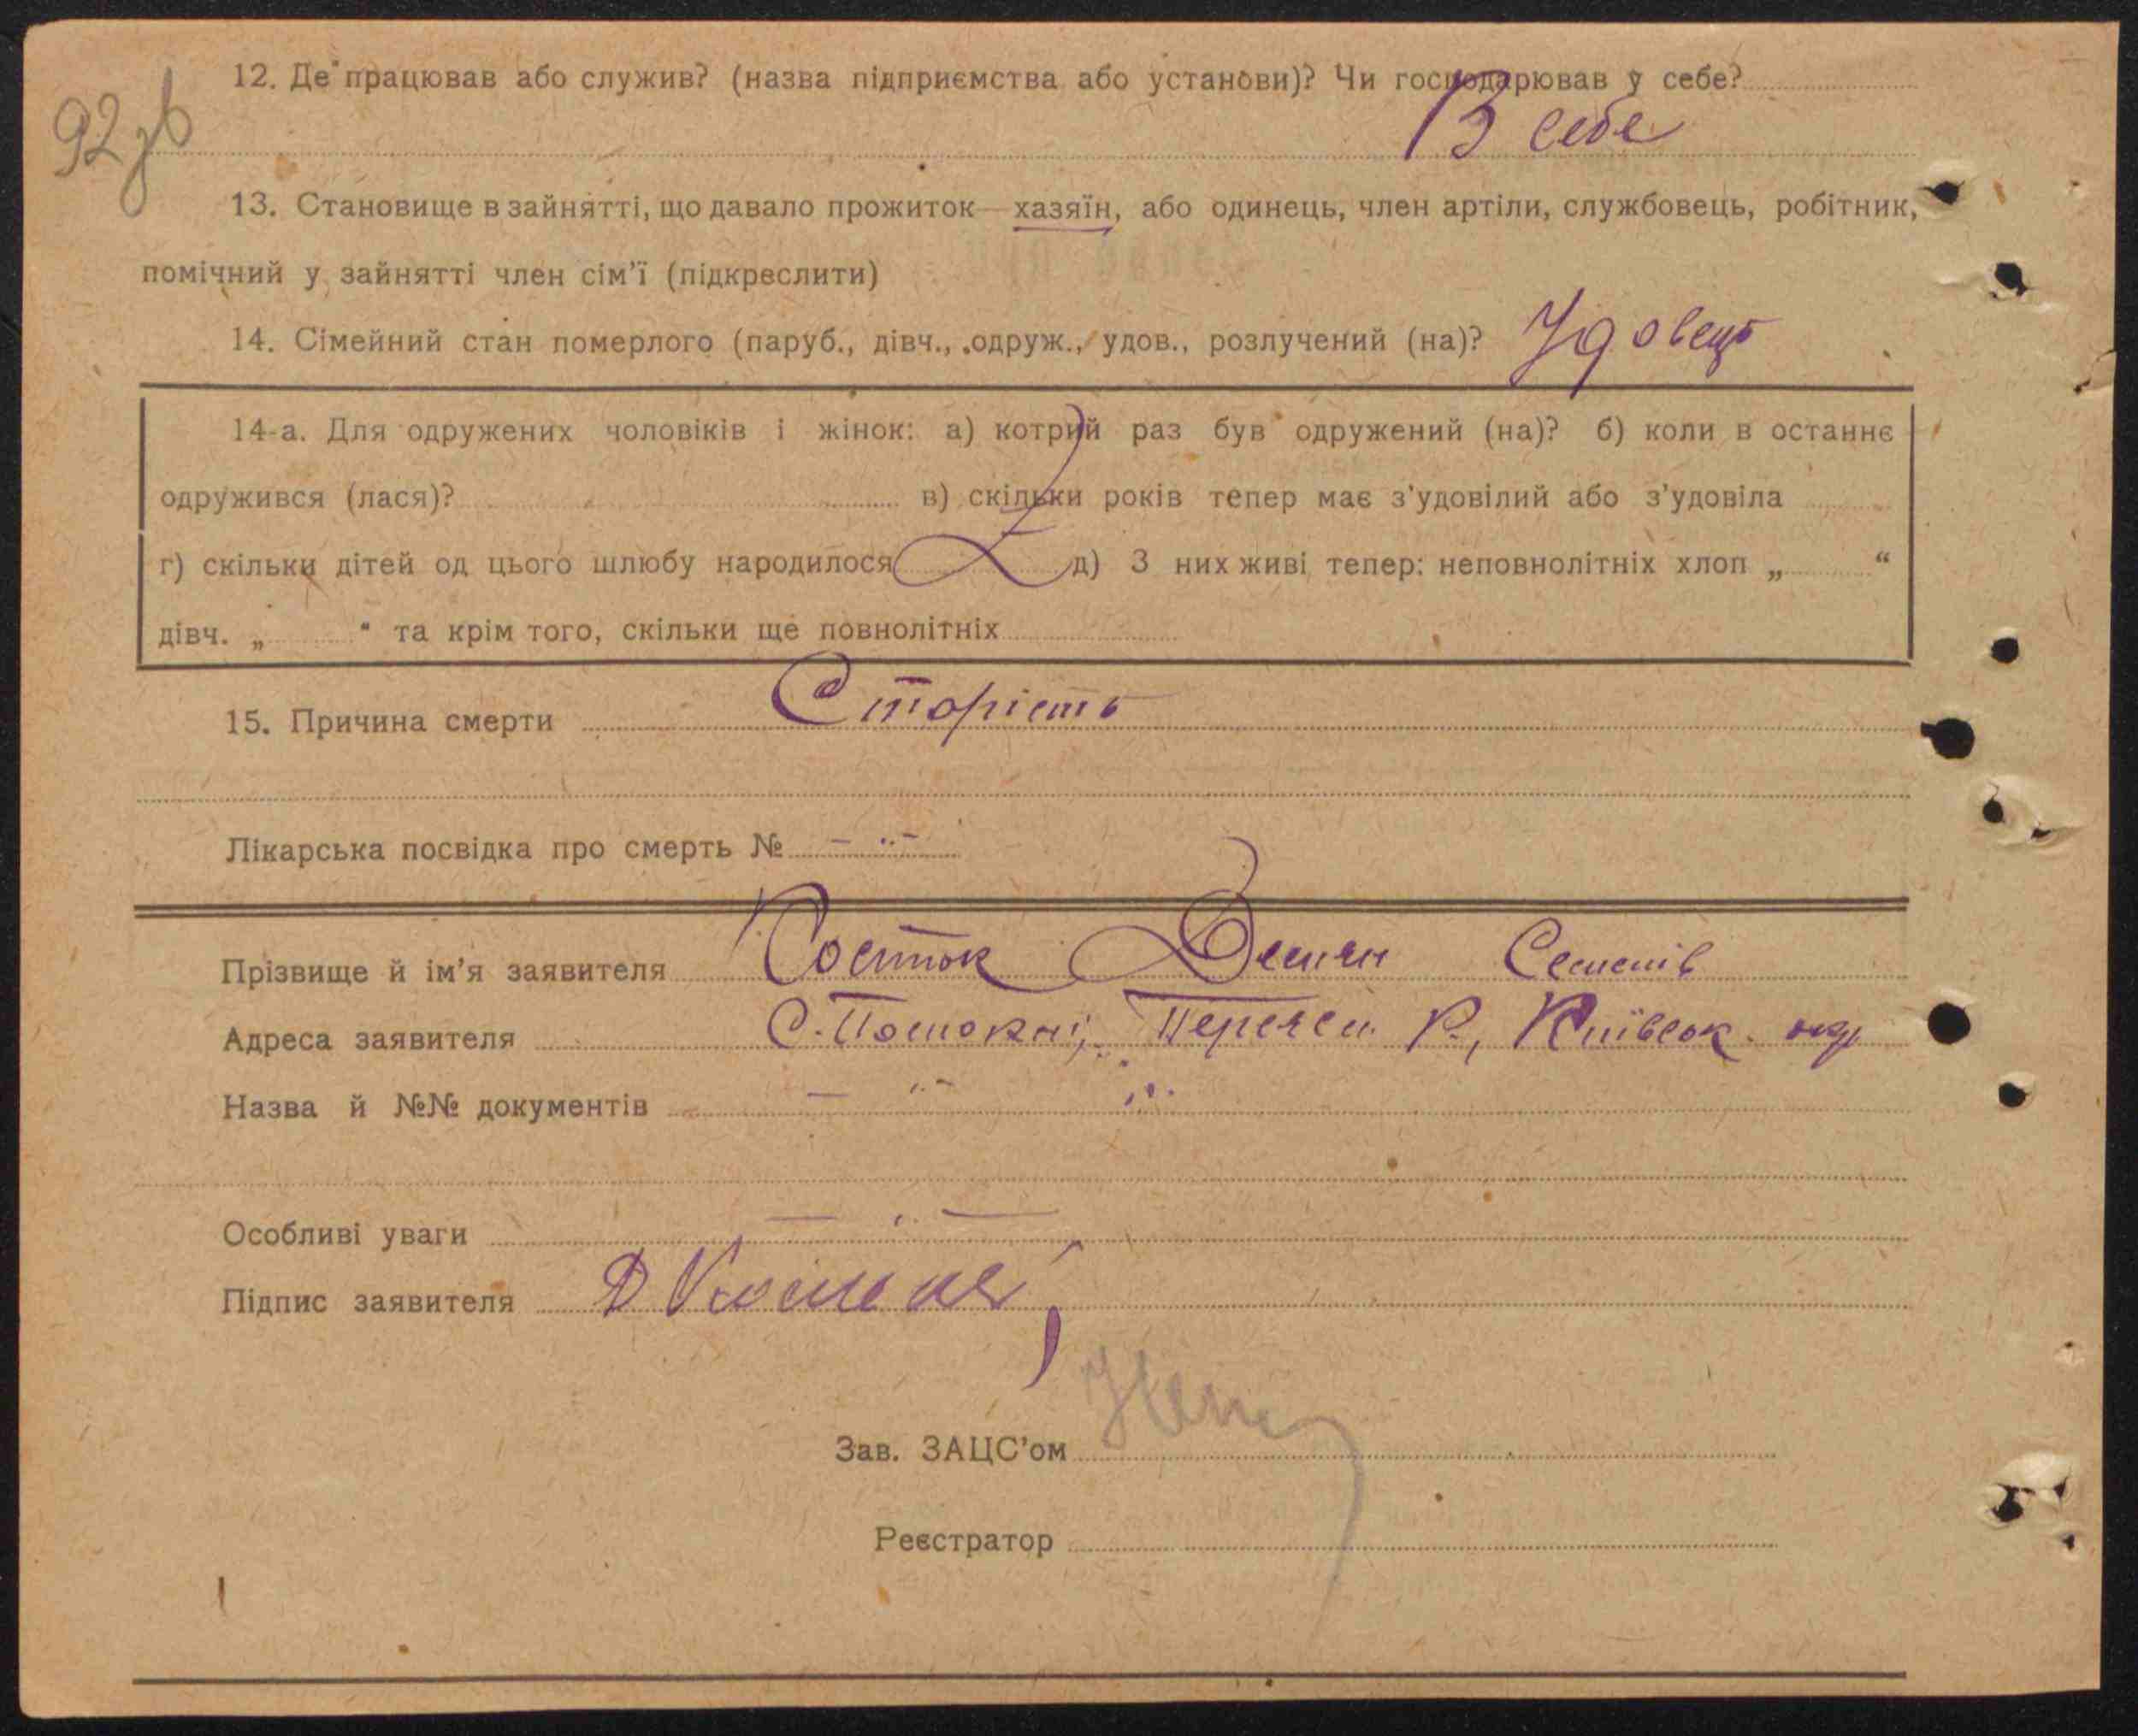 92 зв
12. Де працював або служив? (назва підприємства або установи)? Чи господарював у себе?
В себе
13. Становище в зайнятті, що давало прожиток—хазяїн, або одинець, член артіли, службовець, робітник,
помічний у зайнятті член сім'ї (підкреслити)
14. Сімейний стан померлого (паруб., дівч., одруж., удов., розлучений (на)? Удовець
14-а. Для одружених чоловіків і жінок: а) котрий раз був одружений (на)? б) коли в останнє
одружився (лася)? в) скільки років тепер має з'удовілий або з'удовіла
г) скільки дітей од цього шлюбу народилося д) З них живі тепер: неповнолітніх хлоп „ “
дівч. „ “ та крім того, скільки ще повнолітніх
15. Причина смерти Старість
Лікарська посвідка про смерть № — „ —
Прізвище й ім'я заявителя Косток Демян Семенів
Адреса заявителя С. Потокні, Переясл. Р., Київськ. окр
Назва й №№ документів — „ —
Особливі уваги — „ —
Підпис заявителя Д Косток
Зав. ЗАЦС'ом
Реєстратор